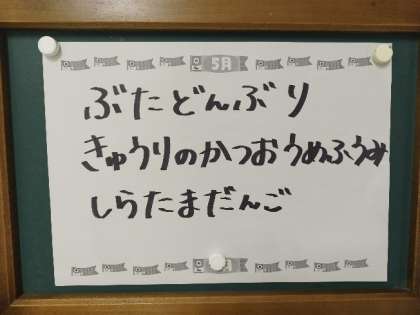 5月
ぶたどんぶり
きゅうりのかつおうめふうみ
しらたまだんご